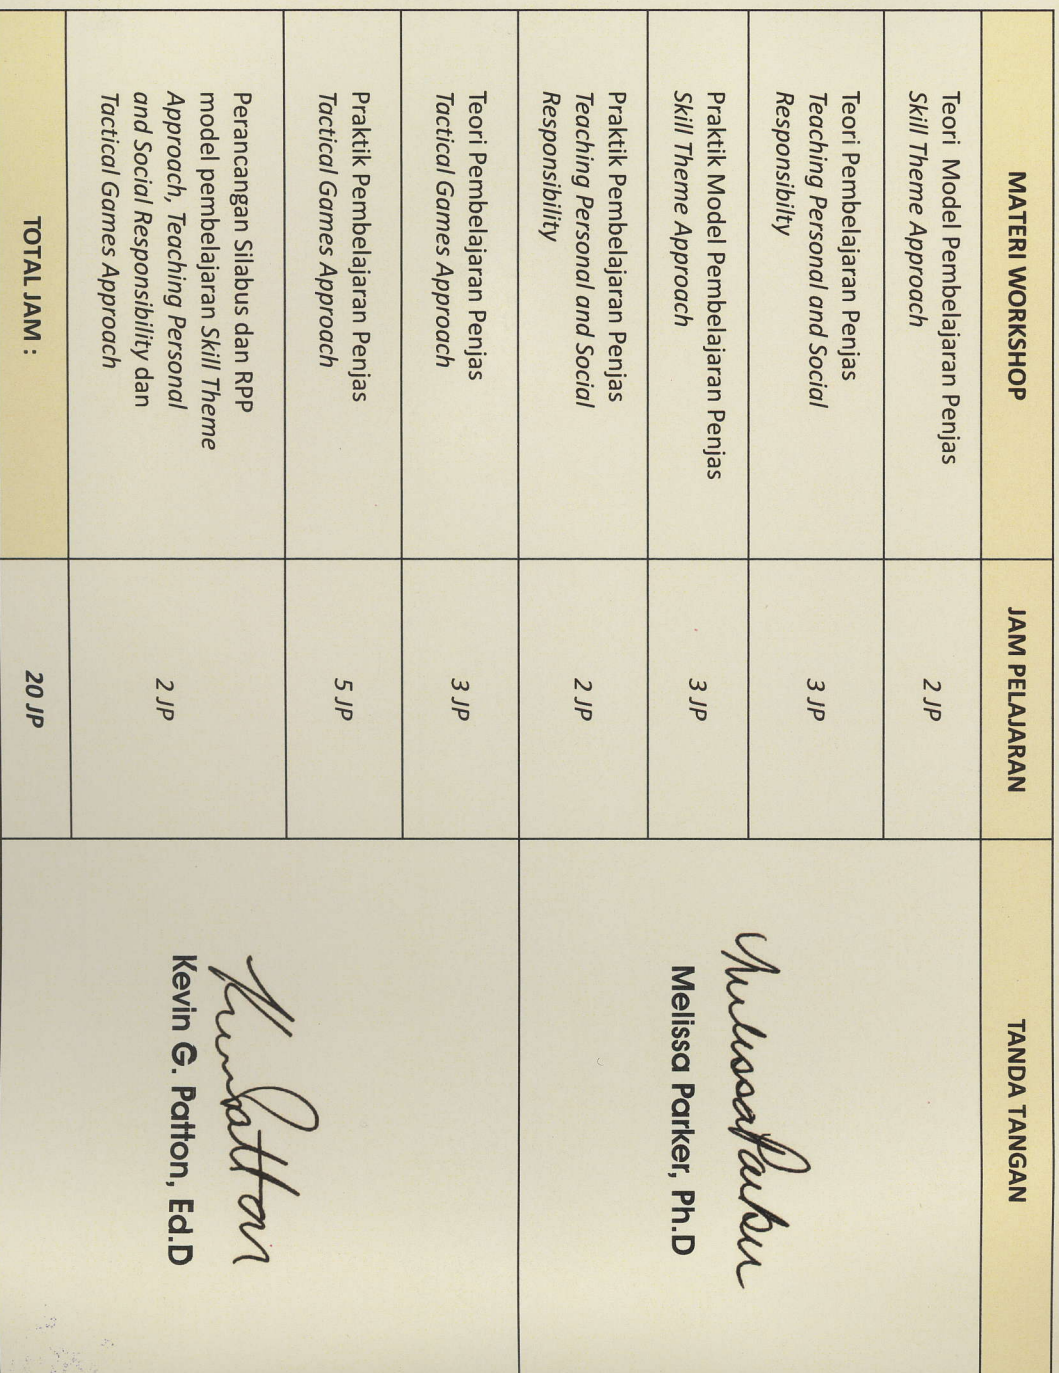 MATERI WORKSHOP
JAM PELAJARAN
TANDA TANGAN
Teori Model Pembelajaran Penjas
Skill Theme Approach
2 JP
Teori Pembelajaran Penjas
Teaching Personal and Social
Responsibilty
3 JP
Praktik Model Pembelajaran Penjas
Skill Theme Approach
3 JP
Praktik Pembelajaran Penjas
Teaching Personal and Social
Responsibility
2 JP
Melissa Parker
Melissa Parker, Ph.D
Teori Pembelajaran Penjas
Tactical Games Approach
3 JP
Praktik Pembelajaran Penjas
Tactical Games Approach
5 JP
Perancangan Silabus dan RPP
model pembelajaran Skill Theme
Approach, Teaching Personal
and Social Responsibility dan
Tactical Games Approach
2 JP
Kevin Patton
Kevin G. Patton, Ed.D
TOTAL JAM :
20 JP